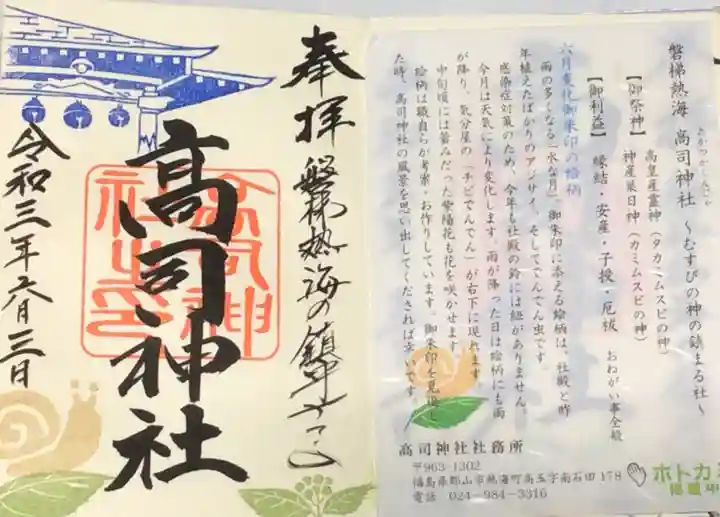 奉拝 磐梯熱海の鎮守さま
高司神社
高司神社之印
令和三年六月三日
磐梯熱海 高司神社 ～むすびの神の鎮まる社～
たかつかさじんじゃ
【御祭神】 高皇産霊神(タカミムスビの神)
神産巣日神(カミムスビの神)
【御利益】 縁結・安産・子授・厄祓 おねがい事全般
六月変化御朱印の絵柄
雨の多くなる「水な月」御朱印に添える絵柄は、社殿と昨
年植えたばかりのアジサイ、そしてでんでん虫です。
感染症対策のため、今年も社殿の鈴には紐がありません。
今月は天気により変化します。雨が降った日は絵柄にも雨
が降り、気分屋の「チビでんでん」が右下に現れます。
中旬頃には蕾みだった紫陽花も花を咲かせます。
絵柄は職自らが考案・お作りしています。御朱印を見返し
た時、高司神社の風景を思い出してくだされば幸いです。
高司神社社務所
〒963-1302
福島県郡山市熱海町高玉字南石田178
電話 024-984-3316
ホトカ